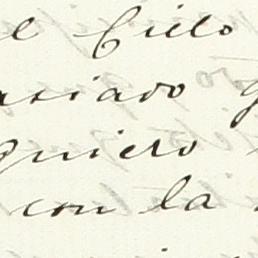 el Cielo
asiado g
quiero
con la